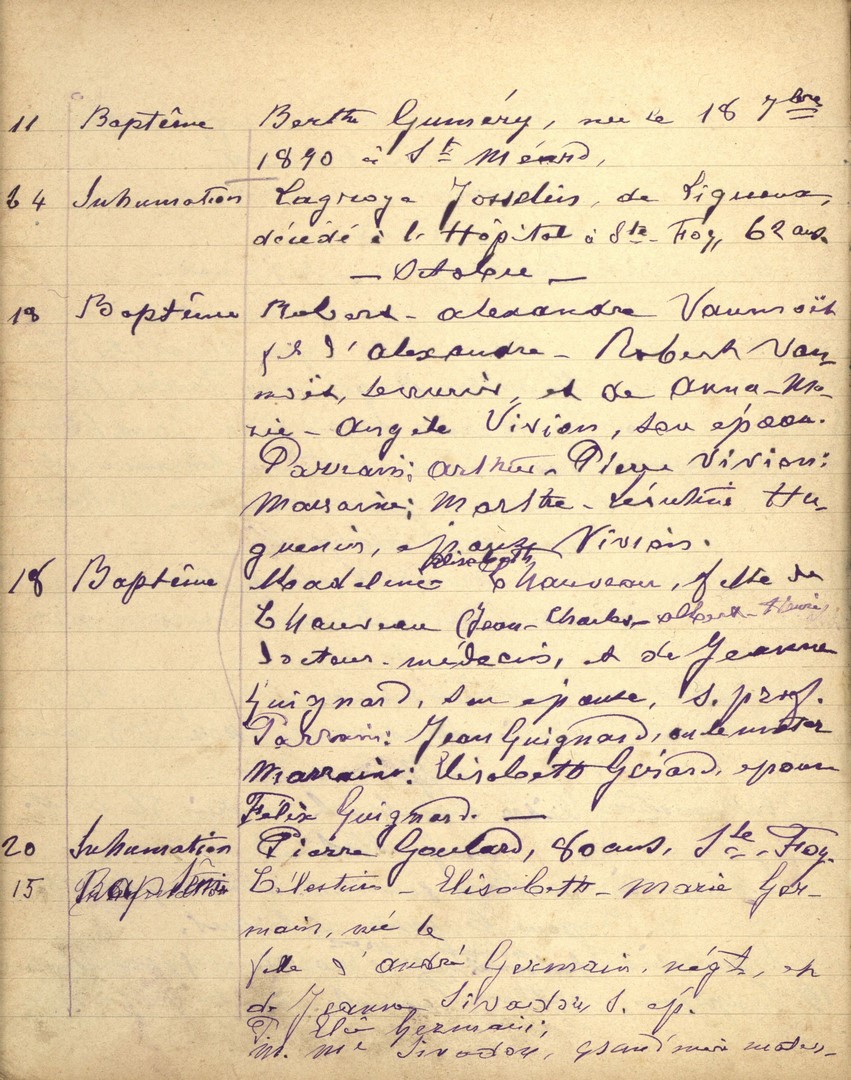 11 Baptême Berthe Guméry, née le 18 7bre
1890 à St Méard,
24 Inhumation Lagroye Josselin, de Ligueux,
décédé à l'Hôpital à Ste Foy, 62 ans.
— Octobre —
18 Baptême Robert-Alexandre Vaumoët
fils d'Alexandre-Robert Vau-
moët, et de Anna-Ma-
rie-Angèle Vivien, son épouse.
Parrain: Arthur-Pierre Vivien;
Marraine; Marthe- Hu-
guenin, épouse Vivien.
Elisabeth
18 Baptême Madeleine Chauveau, fille de
Chauveau (Jean-Charles-Albert-Henri)
docteur-médecin, et de Jeanne
Guignard, son épouse, s. prof.
Parrain: Jean Guignard, oncle mater
Marraine: Elisabeth Gérard, épouse
Felix Guignard. —
20 Inhumation Pierre Goulard, 80 ans, Ste-Foy.
15 Baptême Célestine-Elisabeth-Marie Ger-
main, née le
fille d'André Germain, négt, et
de Jeanne Sivadon s. ép.
P. Elie Germain;
M. Me Sivadon, grand'mère mater-